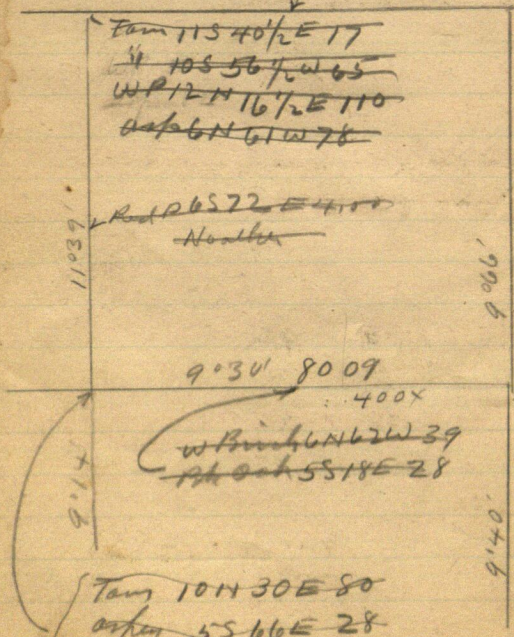 Tam 11 S 40 1/2 E 17
" 10 S 56 1/2 W 65
WP 12 N 16 1/2 E 110
Asp 6 N 61 W 78
Red P 6 S 72 E 4.00
No other
11°39'
9°66'
9°30' 80 09
400X
W Birch 6 N 62 W 39
Blk Oak 5 S 18 E 28
9°40'
Tam 10 N 30 E 80
Aspen 5 S 66 E 28